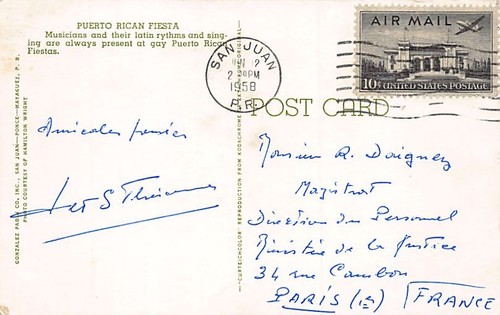 PUERTO RICAN FIESTA
Musicians and their latin rythms and sing-
ing are always present at gay Puerto Rican
Fiestas.
SAN JUAN
2 30PM
1958
P.R.
AIR MAIL
10¢ UNITED STATES POSTAGE
POST CARD
GONZALEZ PADIN CO., INC., SAN JUAN—PONCE—MAYAGUEZ, P. R.
PHOTO COURTESY OF HAMILTON WRIGHT
REPRODUCTION FROM KODACHROME
"CURTEICHCOLOR"
Amicales pensées
Monsieur R.
Magistrat
Direction du Personnel
Ministère de la Justice
34 rue Cambon
PARIS (1er)
FRANCE